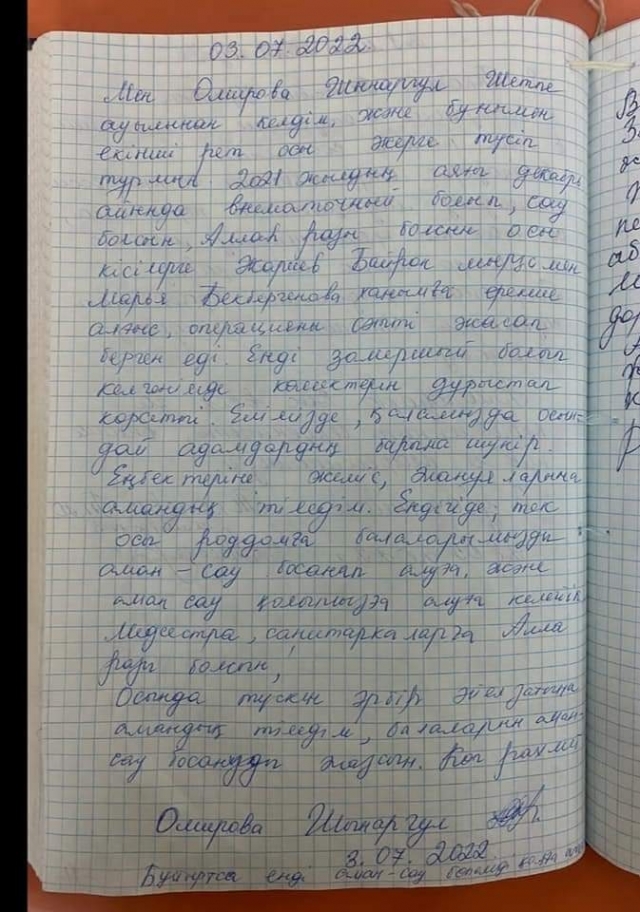 03.07.2022
Мен Омирова Шынаргул Шетпе
ауылынан келдім, және бунымен
екінші рет осы жерге тусіп
турмын 2021 жылдың аяғы декабрь
айында внематочный болып, сау
болсын, Аллах разы болсын осы
кісілерге Жариев Байрон мырза мен
Марья Бекбергенова ханымға ерекше
алғыс, операцияны сәтті жасап
берген еді. Енді замерший болып
келгенімде көмектерін дурыстап
көрсетті. Елімізде, қаламызда осын-
дай адамдардың барына шүкір.
Еңбектеріне жеміс, жануяларына
амандық тіледім. Ендігіде, тек
осы роддомға балаларымызды
аман-сау босанып алуға, және
аман сау қолымызға алуға келейік.
Медсестра, санитаркаларға Алла
разы болсын,
Осында тускен әрбір әйел затына
амандық тіледім, балаларын аман-
сау босануды жазсын. Көп рахмет
Омирова Шынаргул
3.07.2022
Буйыртса енді аман-сау бөпемді